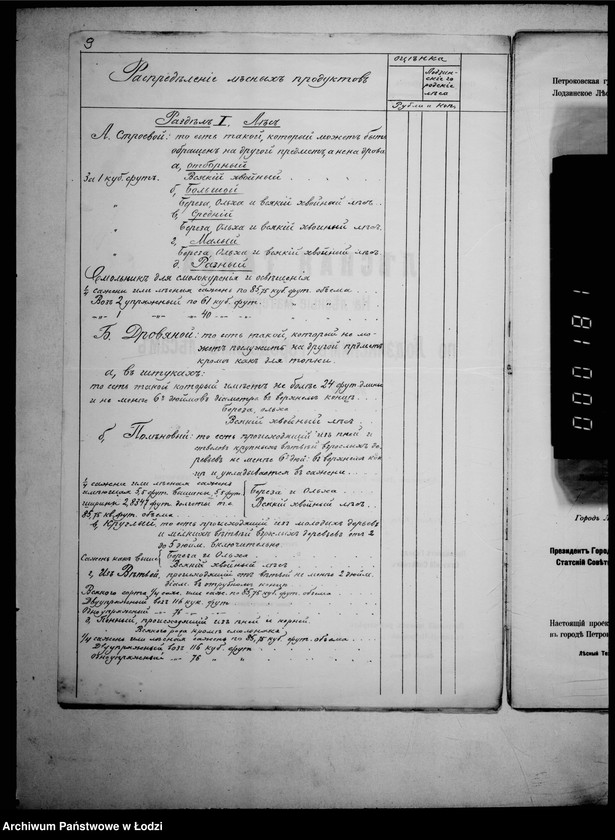 9
Распредѣленіе лѣсныхъ продуктовъ
оцѣнка
Лодзин-
скіе го
родскіе
лѣса
Рубли и Коп.
Раздѣлъ I. Лѣсъ
А. Строевой: то есть такой, который можетъ быть
обращенъ на другой предметъ, а не на дрова
а, отборный
За 1 куб. футъ. Всякій хвойный
б, Большой
" Береза, Ольха и всякій хвойный лѣсъ
в, Средній
" Береза, Ольха и всякій хвойный лѣсъ
г, Малый
" Береза, Ольха и всякій хвойный лѣсъ
д, Разный
Смольникъ для смолокуренія и освѣщенія
¼ сажени или лѣсная сажень по 85,75 куб. фут. объема
Возъ 2 упряжный по 61 куб. фут.
" 1 " 40
Б. Дровяной: то есть такой, который не мо-
жетъ послужить на другой предметъ
кромѣ какъ для топки.
а, въ штукахъ:
то есть такой который имѣетъ не болѣе 24 фут. длины
и не менѣе 6 дюймовъ діаметра въ верхнемъ концѣ
Береза, ольха
Всякій хвойный лѣсъ
б, Полѣновый: то есть происходящій изъ пней и
стволовъ крупныхъ вѣтвей взрослыхъ де-
ревьевъ не менѣе 6 дюй. въ верхнемъ кон-
цѣ и укладывается въ сажени
¼ сажени или лѣсная сажень
имѣющая 5,5 фут. вышины 5,5 фут. Береза и Ольха
ширины 2,8347 фут. долготы т.е. Всякій хвойный лѣсъ
85,75 куб. фут. объема
в, Круглый, то есть происходящій изъ молодыхъ деревьевъ
и мелкихъ вѣтвей взрослыхъ деревьевъ отъ 2
до 5 дюйм. включительно
Сажень какъ выше Береза и Ольха
Всякій хвойный лѣсъ
г, Изъ Вѣтвей, происходящій отъ вѣтвей не менѣе 2 дюйм.
діам. въ отрубномъ концѣ
Всякаго сорта ¼ саже. или саже. по 85,75 куб. фут. объема
Двуупряжный возъ 116 куб. фут.
Одноупряжный " 76
д, Пенный, происходящій изъ пней и корней
Всякаго рода кромѣ смольника
¼ сажени или лѣсная сажень по 85,75 куб. фут. объема
Двуупряжный возъ 116 куб. фут.
Одноупряжный " 76 "
Петроковская г
Лодзинское Лѣс
Городъ Л
Президентъ Горо
Статскій Совѣт
Настоящій проек
въ городѣ Петро
Лѣсный То
000181
Archiwum Państwowe w Łodzi